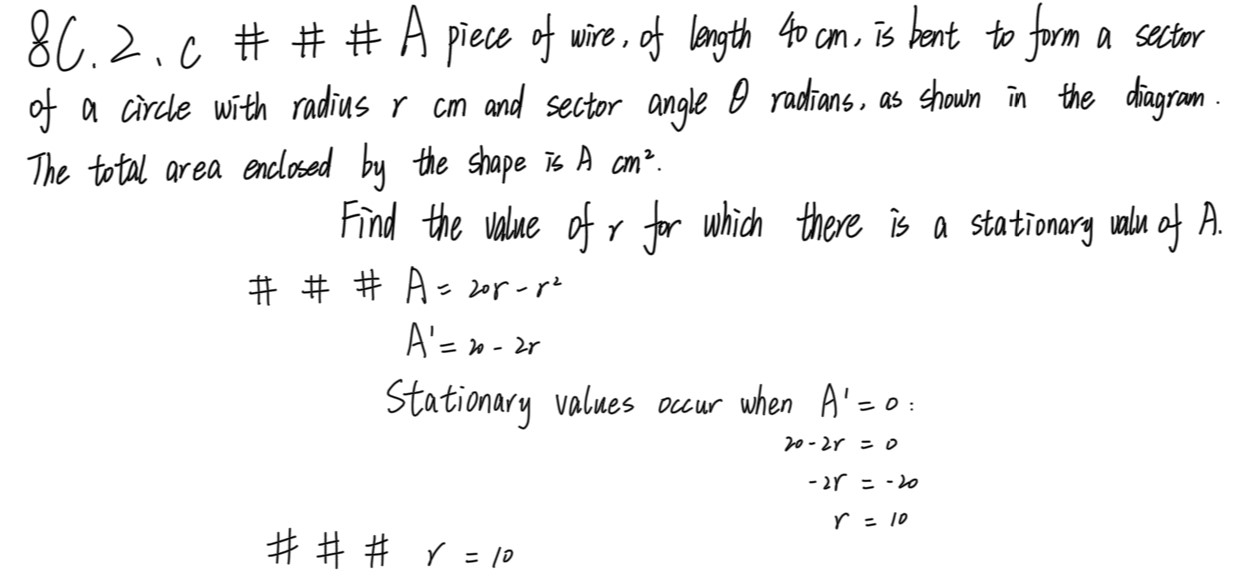 8C.2.c # # # A piece of wire, of length 40 cm, is bent to form a sector
of a circle with radius r cm and sector angle θ radians, as shown in the diagram.
The total area enclosed by the shape is A cm².
Find the value of r for which there is a stationary valu of A.
# # # A = 20r - r²
A' = 20 - 2r
Stationary values occur when A' = 0 :
20 - 2r = 0
-2r = -20
r = 10
# # # r = 10